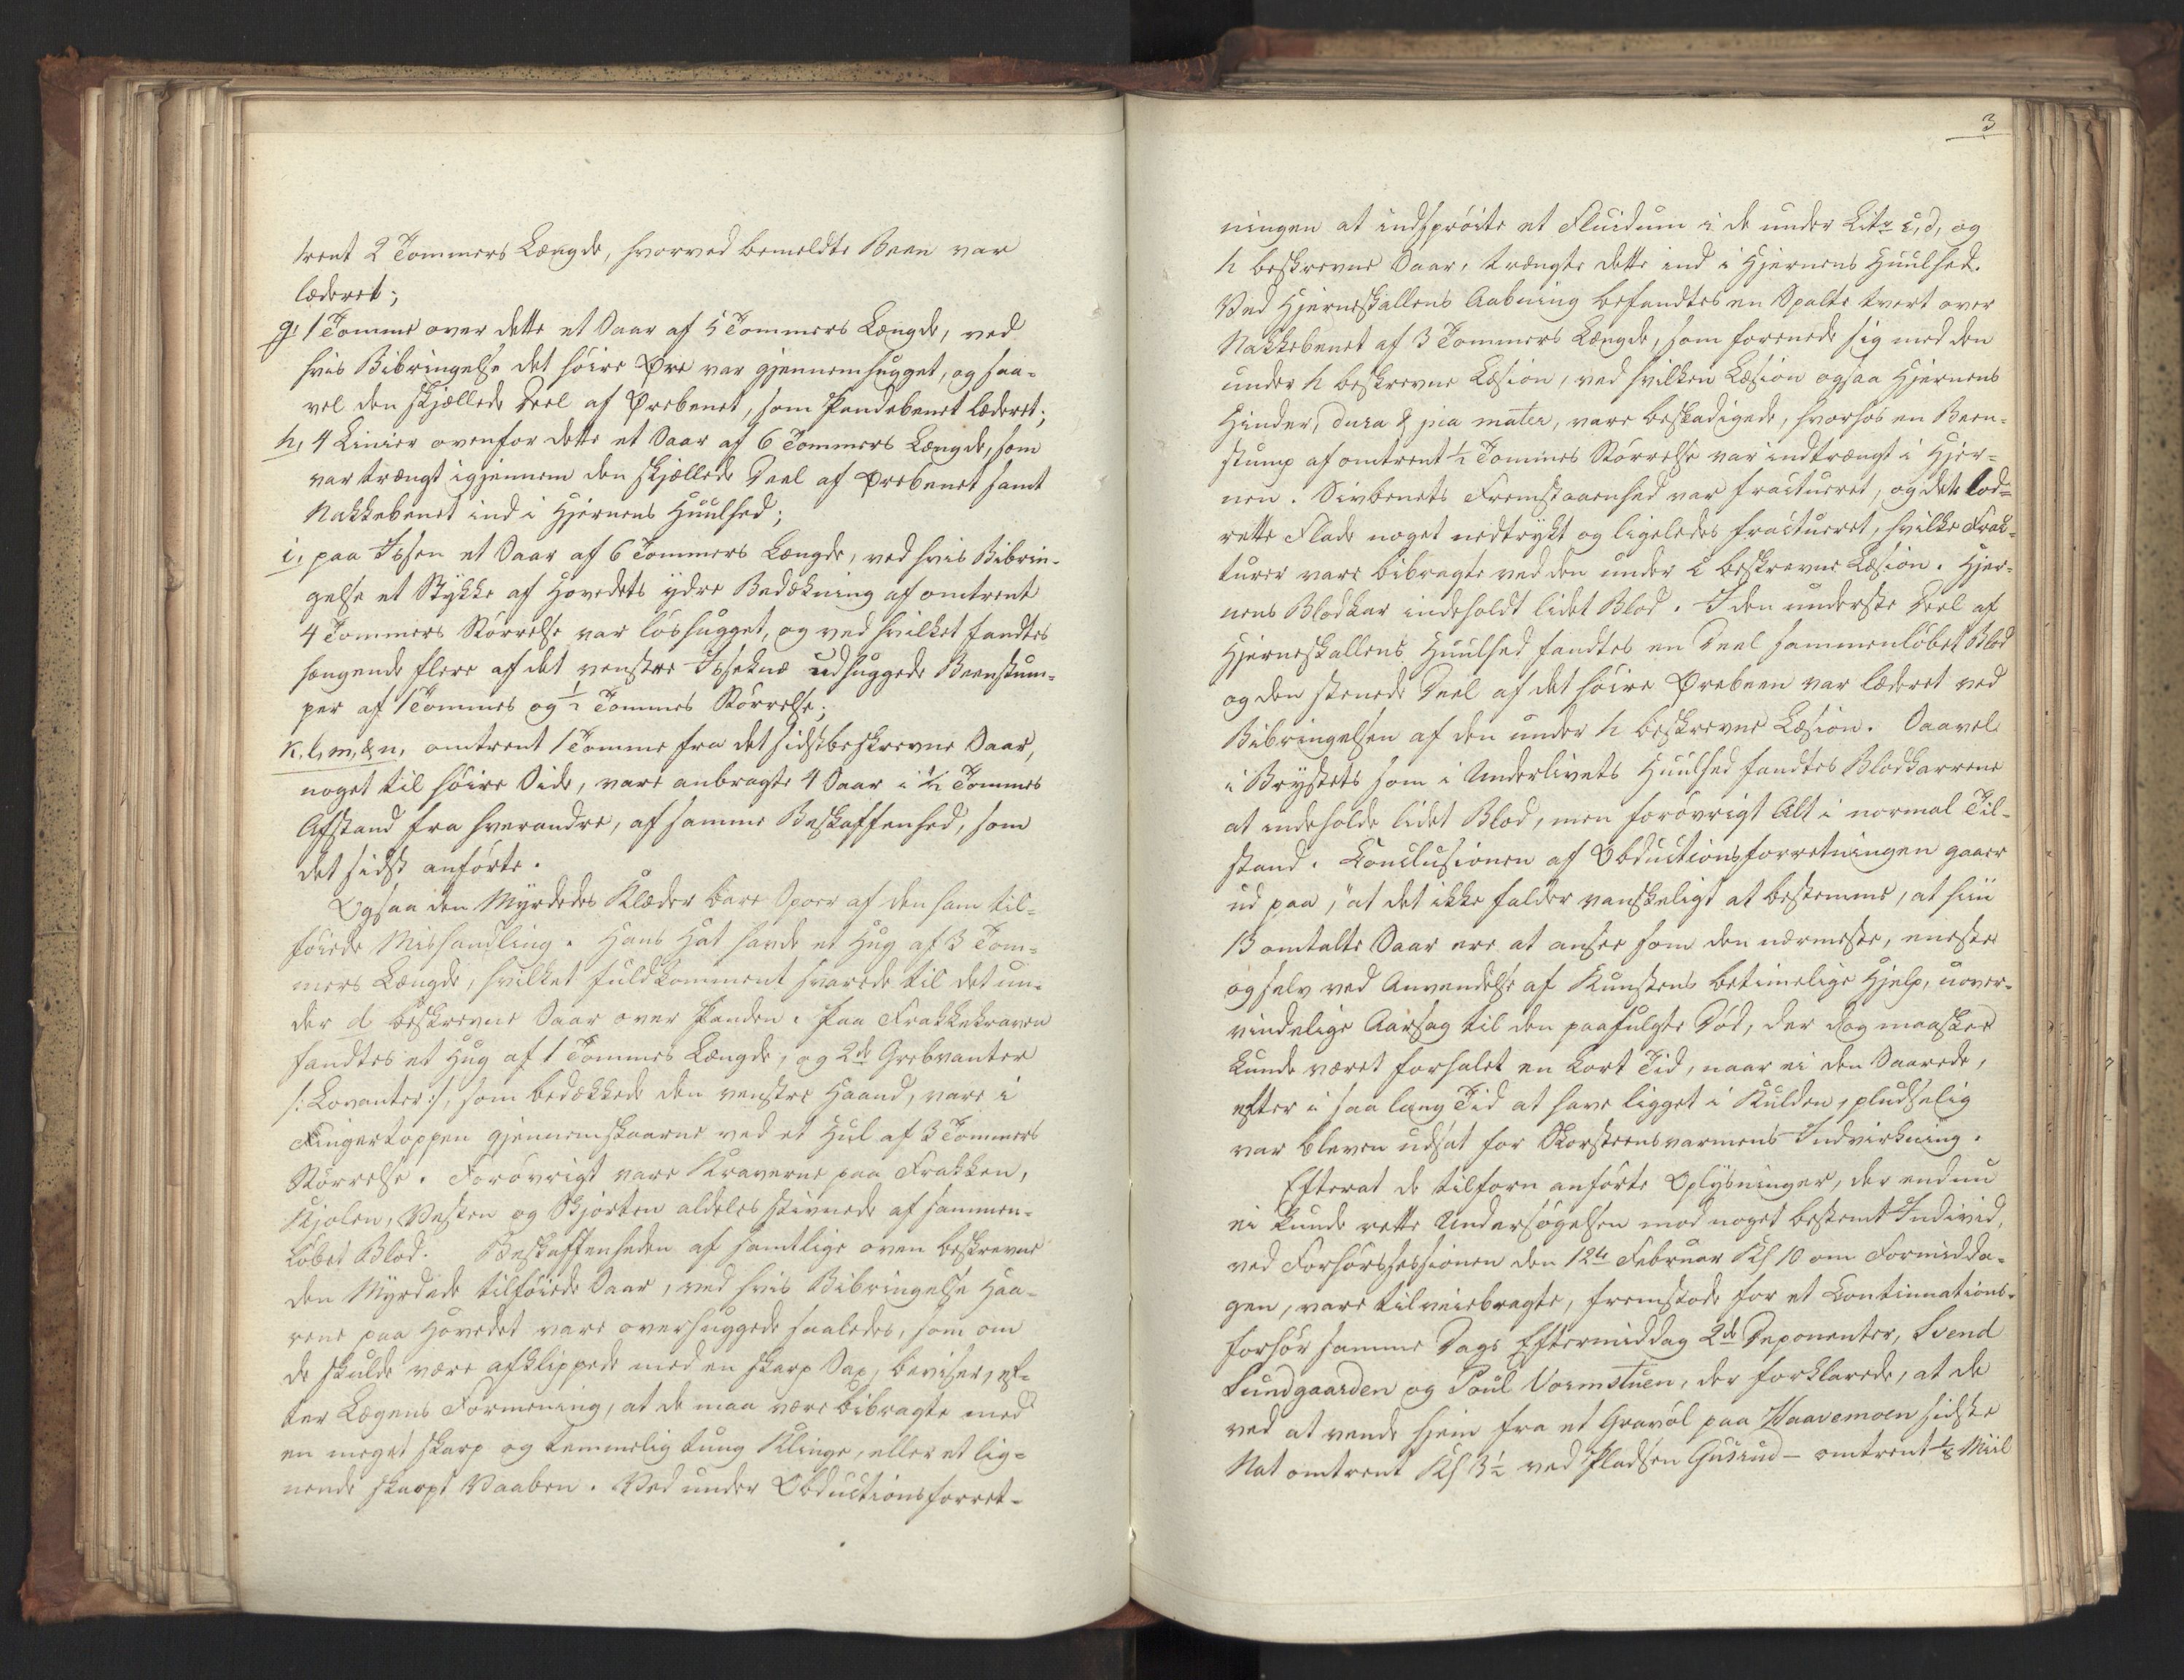 trent 2 Tommers Længde, hvorved bemeldte Been var
læderet;
g, 1 Tomme over dette et Saar af 5 Tommers Længde, ved
hvis Bibringelse det høire Øre var gjennemhugget, og saa-
vel den skjællede Deel af Ørebenet, som Pandebenet læderet;
h, 4 Linier ovenfor dette et Saar af 6 Tommers Længde, som
var trængt igjennem den skjællede Deel af Ørebenet samt
Nakkebenet ind i Hjernens Huulhed;
i, paa Issen et Saar af 6 Tommers Længde, ved hvis Bibrin-
gelse et Stykke af Hovedets ydre Bedækning af omtrent
4 Tommers Størrelse var løshugget, og ved hvilket fandtes
hængende flere af det venstre udhuggede Beenstum-
per af 1 Tommes og ½ Tommes Størrelse;
k, l, m, & n, omtrent 1 Tomme fra det sidstbeskrevne Saar,
noget til høire Side, vare anbragte 4 Saar i ½ Tommes
Afstand fra hverandre, af samme Beskaffenhed, som
det sidst anførte.
Ogsaa den Myrdedes Klæder bare Spoer af den ham til-
føiede Mishandling. Hans Hat havde et Hug af 3 Tom-
mers Længde, hvilket fuldkomment svarede til det un-
der d beskrevne Saar over Panden. Paa Frakkekraven
fandtes et Hug af 1 Tommes Længde, og 2de Grebvanter
/: Lovanter :/, som bedækkede den venstre Haand, vare i
Fingertoppen gjennemskaarne ved et Hul af 3 Tommers
Størrelse. Forøvrigt vare Kraverne paa Frakken,
Kjolen, Vesten og Skjorten aldeles stivnede af sammen-
løbet Blod. Beskaffenheden af samtlige oven beskrevne
den Myrdede tilføiede Saar, ved hvis Bibringelse Haa-
rene paa Hovedet vare overhuggede saaledes, som om
de skulde være afklippede med en skarp Sax, beviser, ef-
ter Lægens Formening, at de maa være bibragte med
en meget skarp og temmelig tung Klinge, eller et lig-
nende skarpt Vaaben. Ved under Obductionsforret-
3
ningen at indsprøite et Fluidum i de under Litr c, d, og
h beskrevne Saar, trængte dette ind i Hjernens Huulhed.
Ved Hjerneskallens Aabning befandtes en Spalte tvert over
Nakkebenet af 3 Tommers Længde, som forenede sig med den
under h beskrevne Læsion, ved hvilken Læsion ogsaa Hjernens
Hinder, dura & pia mater, vare beskadigede, hvorhos en Been-
stump af omtrent ½ Tommes Størrelse var indtrængt i Hjer-
nen. Sivbenets Fremstaaenhed var fractueret, og dets lod-
rette Flade noget nedtrykt og ligeledes fractueret, hvilke Frac-
turer vare bibragte ved den under c beskrevne Læsion. Hjer-
nens Blodkar indeholdt lidet Blod. I den underste Deel af
Hjerneskallens Huulhed fandtes en Deel sammenløbet Blod
og den stenede Deel af det høire Ørebeen var læderet ved
Bibringelsen af den under h beskrevne Læsion. Saavel
i Brystets som i Underlivets Huulhed fandtes Blodkarrene
at indeholde lidet Blod, men forøvrigt Alt i normal Til-
stand. Conclusionen af Obductionsforretningen gaaer
ud paa, "at det ikke falder vanskeligt at bestemme, at hiin
13 omtalte Saar ere at ansee som den nærmeste, eneste
og selv ved Anvendelse af Kunstens betimelige Hjelp, uover-
vindelige Aarsag til den paafulgte Død, der dog maaskee
kunde været forhalet en kort Tid, naar ei den Saarede,
efter i saa lang Tid at have ligget i Kulden, pludselig
var bleven udsat for Skorsteensvarmens Indvirkning.
Efterat de tilforn anførte Oplysninger, der endnu
ei kunde rette Undersøgelsen mod noget bestemt Individ,
ved Forhørssessionen den 12te Februar Kl 10 om Formidda-
gen, vare tilveiebragte, fremstode for et Continuations-
forhør samme Dags Eftermiddag 2de Deponenter, Svend
Sundgaarden og Poul Vormstuen, der forklarede, at de
ved at vende hjem fra et Gravøl paa Haavemoen sidste
Nat omtrent Kl 3½ ved Pladsen Gusrud - omtrent ⅛ Miil